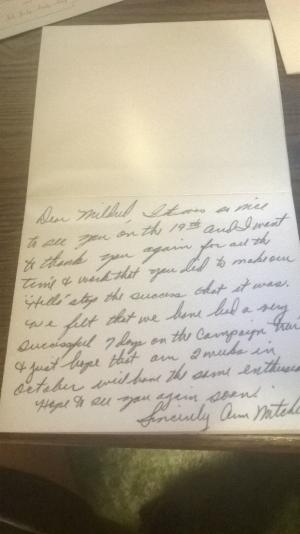 Dear Mildred, It was so nice
to see you on the 19th and I want
to thank you again for all the
time & work that you did to make our
"Hello" stop the success that it was.
We felt that we have had a very
successful 7 days on the Campaign trail
& just hope that our 2 weeks in
October will have the same enthusiasm
Hope to see you again soon.
Sincerely Ann Mitche